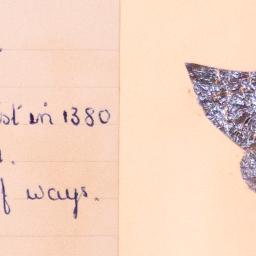 st in 1380
f ways.